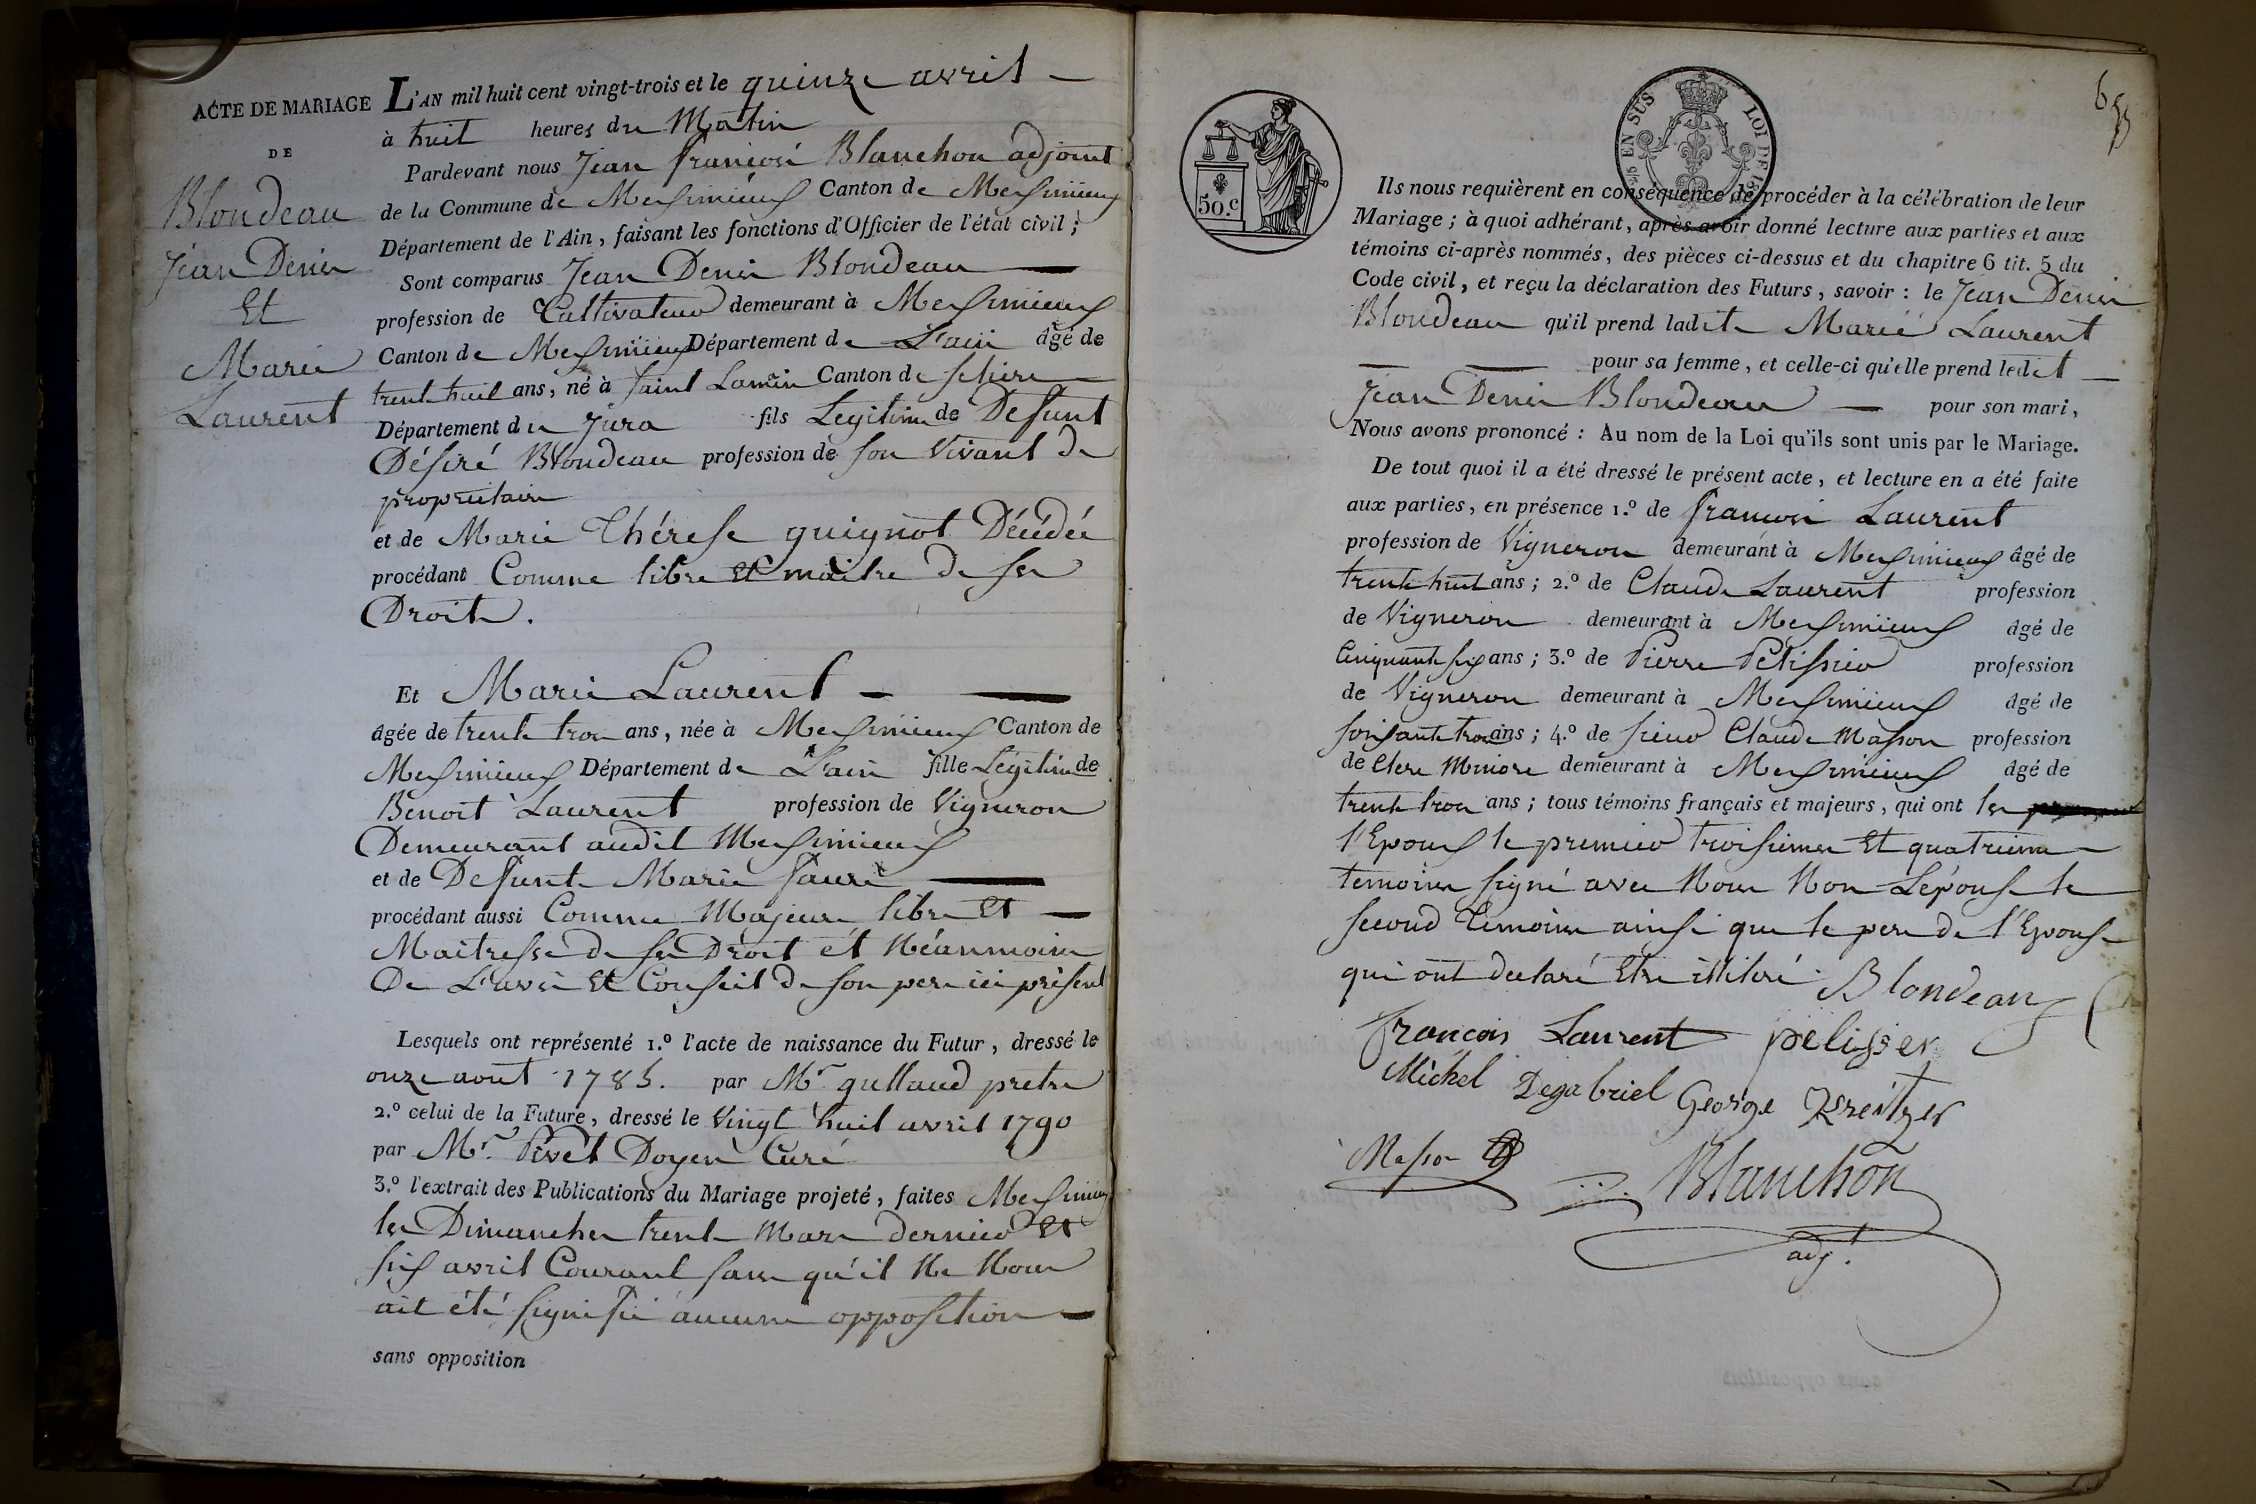 ACTE DE MARIAGE
DE
Blondeau
Jean Denis
Et
Marie
Laurent
L'AN mil huit cent vingt-trois et le quinze avril
à huit heures du Matin
Pardevant nous Jean françois Blanchon adjoint
de la Commune de Meximieux Canton de Meximieux
Département de l'Ain, faisant les fonctions d'Officier de l'état civil ;
Sont comparus Jean Denis Blondeau
profession de Cultivateur demeurant à Meximieux
Canton de Meximieux Département de L'ain âgé de
trente huit ans, né à Saint Lamin Canton de Seliere
Département du Jura fils Legitime de Defunt
Désiré Blondeau profession de son Vivant de
propriétaire
et de Marie Thérese guignot Décédée
procédant Comme libre Et maitre de ses
Droits.
Et Marie Laurent
âgée de trente trois ans, née à Meximieux Canton de
Meximieux Département de L'ain fille Légitime de
Benoit Laurent profession de Vigneron
Demeurant audit Meximieux
et de Defunte Marie faure
procédant aussi Comme Majeure libre Et
Maitresse de ses Droit et Néanmoins
De L'avis Et Conseil de son pere ici présent
Lesquels ont représenté 1.º l'acte de naissance du Futur, dressé le
onze aout 1785. par Mr gullaud pretre
2.º celui de la Future, dressé le Vingt huit avril 1790
par Mr. Pivet Doyen Curé
3.º l'extrait des Publications du Mariage projeté, faites Meximieux
les Dimanches trente Mars dernier Et
six avril Courant sans qu'il Ne Nous
ait été signifié aucune opposition
sans opposition
50.C
EN SUS LOI DE 18
6
Ils nous requièrent en conséquence de procéder à la célébration de leur
Mariage ; à quoi adhérant, après avoir donné lecture aux parties et aux
témoins ci-après nommés, des pièces ci-dessus et du chapitre 6 tit. 5 du
Code civil, et reçu la déclaration des Futurs, savoir : le Jean Denis
Blondeau qu'il prend ladite Marie Laurent
pour sa femme, et celle-ci qu'elle prend ledit
Jean Denis Blondeau pour son mari,
Nous avons prononcé : Au nom de la Loi qu'ils sont unis par le Mariage.
De tout quoi il a été dressé le présent acte, et lecture en a été faite
aux parties, en présence 1.º de françois Laurent
profession de Vigneron demeurant à Meximieux âgé de
trente huit ans ; 2.º de Claude Laurent profession
de Vigneron demeurant à Meximieux âgé de
Cinquante six ans ; 3.º de Pierre Pélissier profession
de Vigneron demeurant à Meximieux âgé de
soixante trois ans ; 4.º de sieur Claude Masson profession
de Clerc Minore demeurant à Meximieux âgé de
trente trois ans ; tous témoins français et majeurs, qui ont les
l'Epoux le premier troisieme Et quatrieme
temoins signé avec Nous Non L'épouse le
second temoins ainsi que le pere de l'Epouse
qui ont declaré Etre illiteré. Blondeau
francois Laurent pelisser
Michel Degabriel George Kreitzer
Masson Blanchon
adj.t